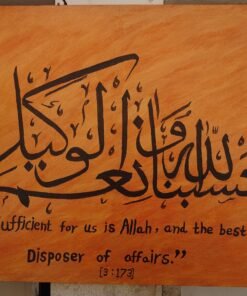 حسبنا الله ونعم الوكيل
ufficient for us is Allah, and the best
Disposer of affairs.”
[3:173]